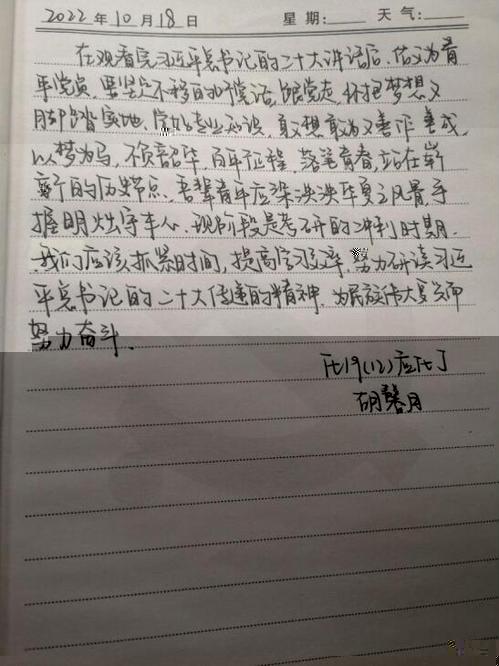 2022 年 10 月 18 日 星 期: 天 气:
在观看完习近平总书记的二十大讲话后,作为青
年党员,要坚定不移的听党话,跟党走,怀抱梦想又
脚踏实地,学好专业知识,敢想敢为又善作善成,
以梦为马,不负韶华,百年征程,落笔青春,站在崭
新的历史节点,吾辈青年应染泱泱华夏之风骨,手
握明灿守华心,现阶段是考研的冲刺时期,
我们应该抓紧时间,提高学习效率,努力研读习近
平总书记的二十大传递的精神,为民族伟大复兴而
努力奋斗.
化19(12)应化
胡馨月